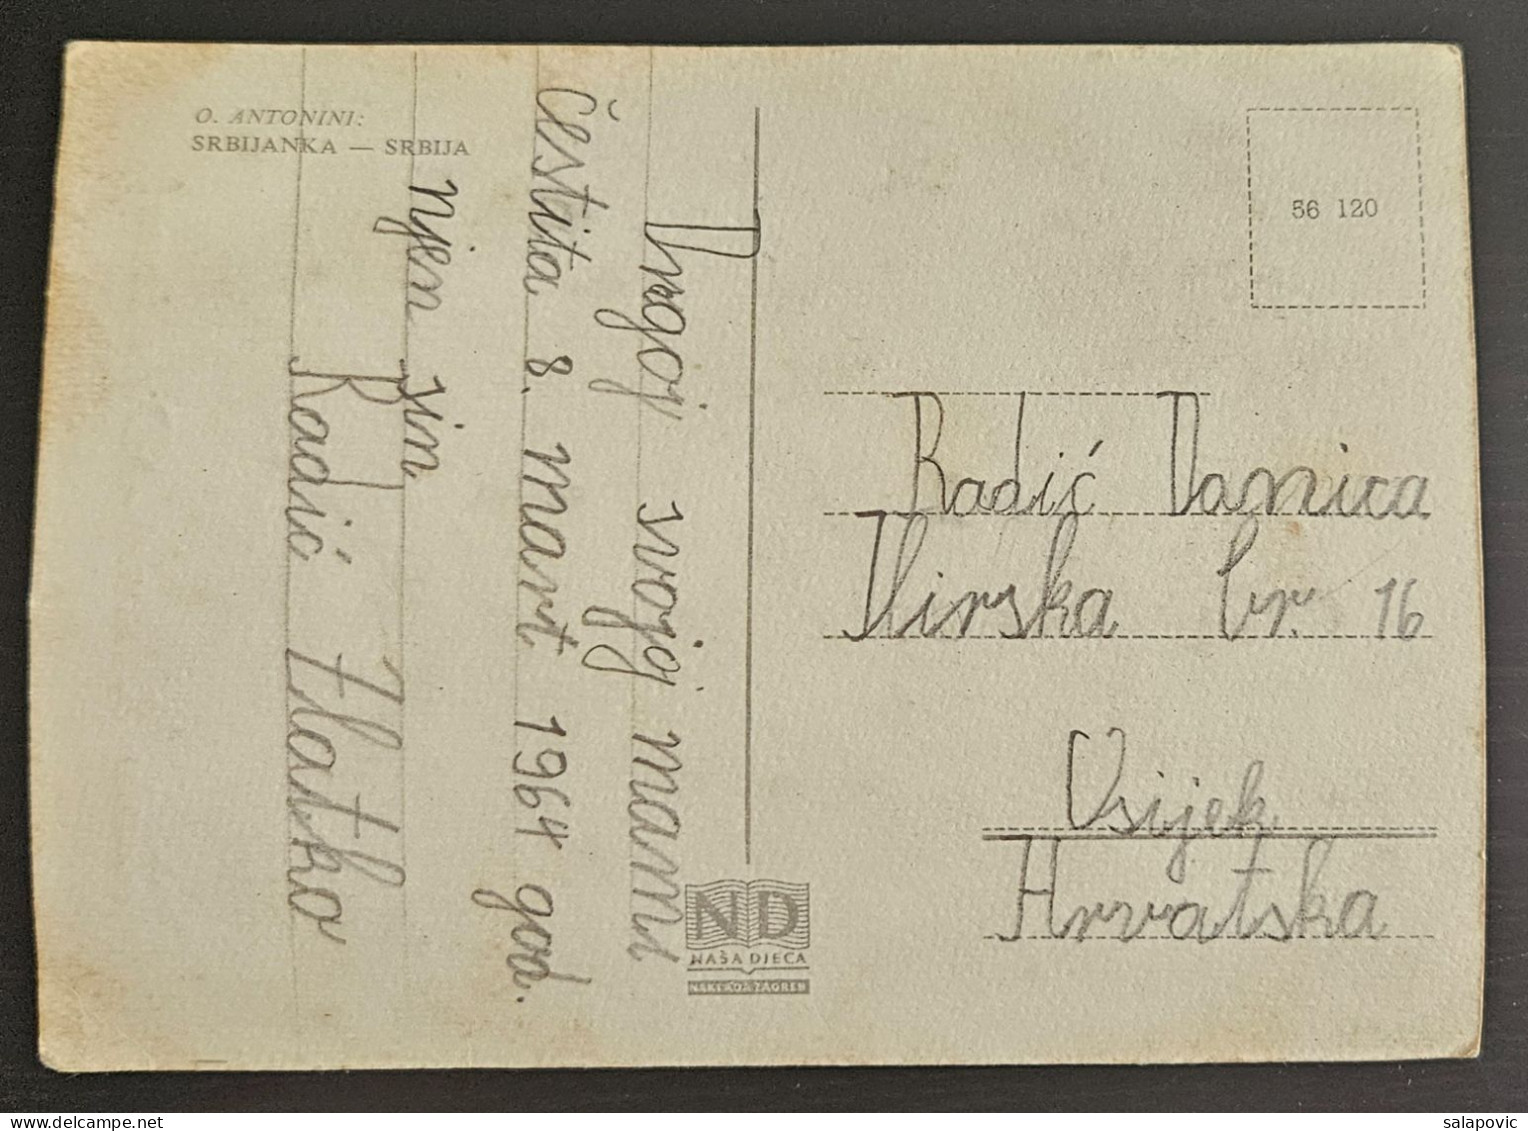 O. ANTONINI:
SRBIJANKA — SRBIJA
Dragoj svojoj mami
čestita 8. mart 1964 god.
njen sin
Radić Zlatko
56 120
Radić Danica
Ilirska br. 16
Osijek
Hrvatska
ND
NAŠA DJECA
NAKLADA ZAGREB
salapovic